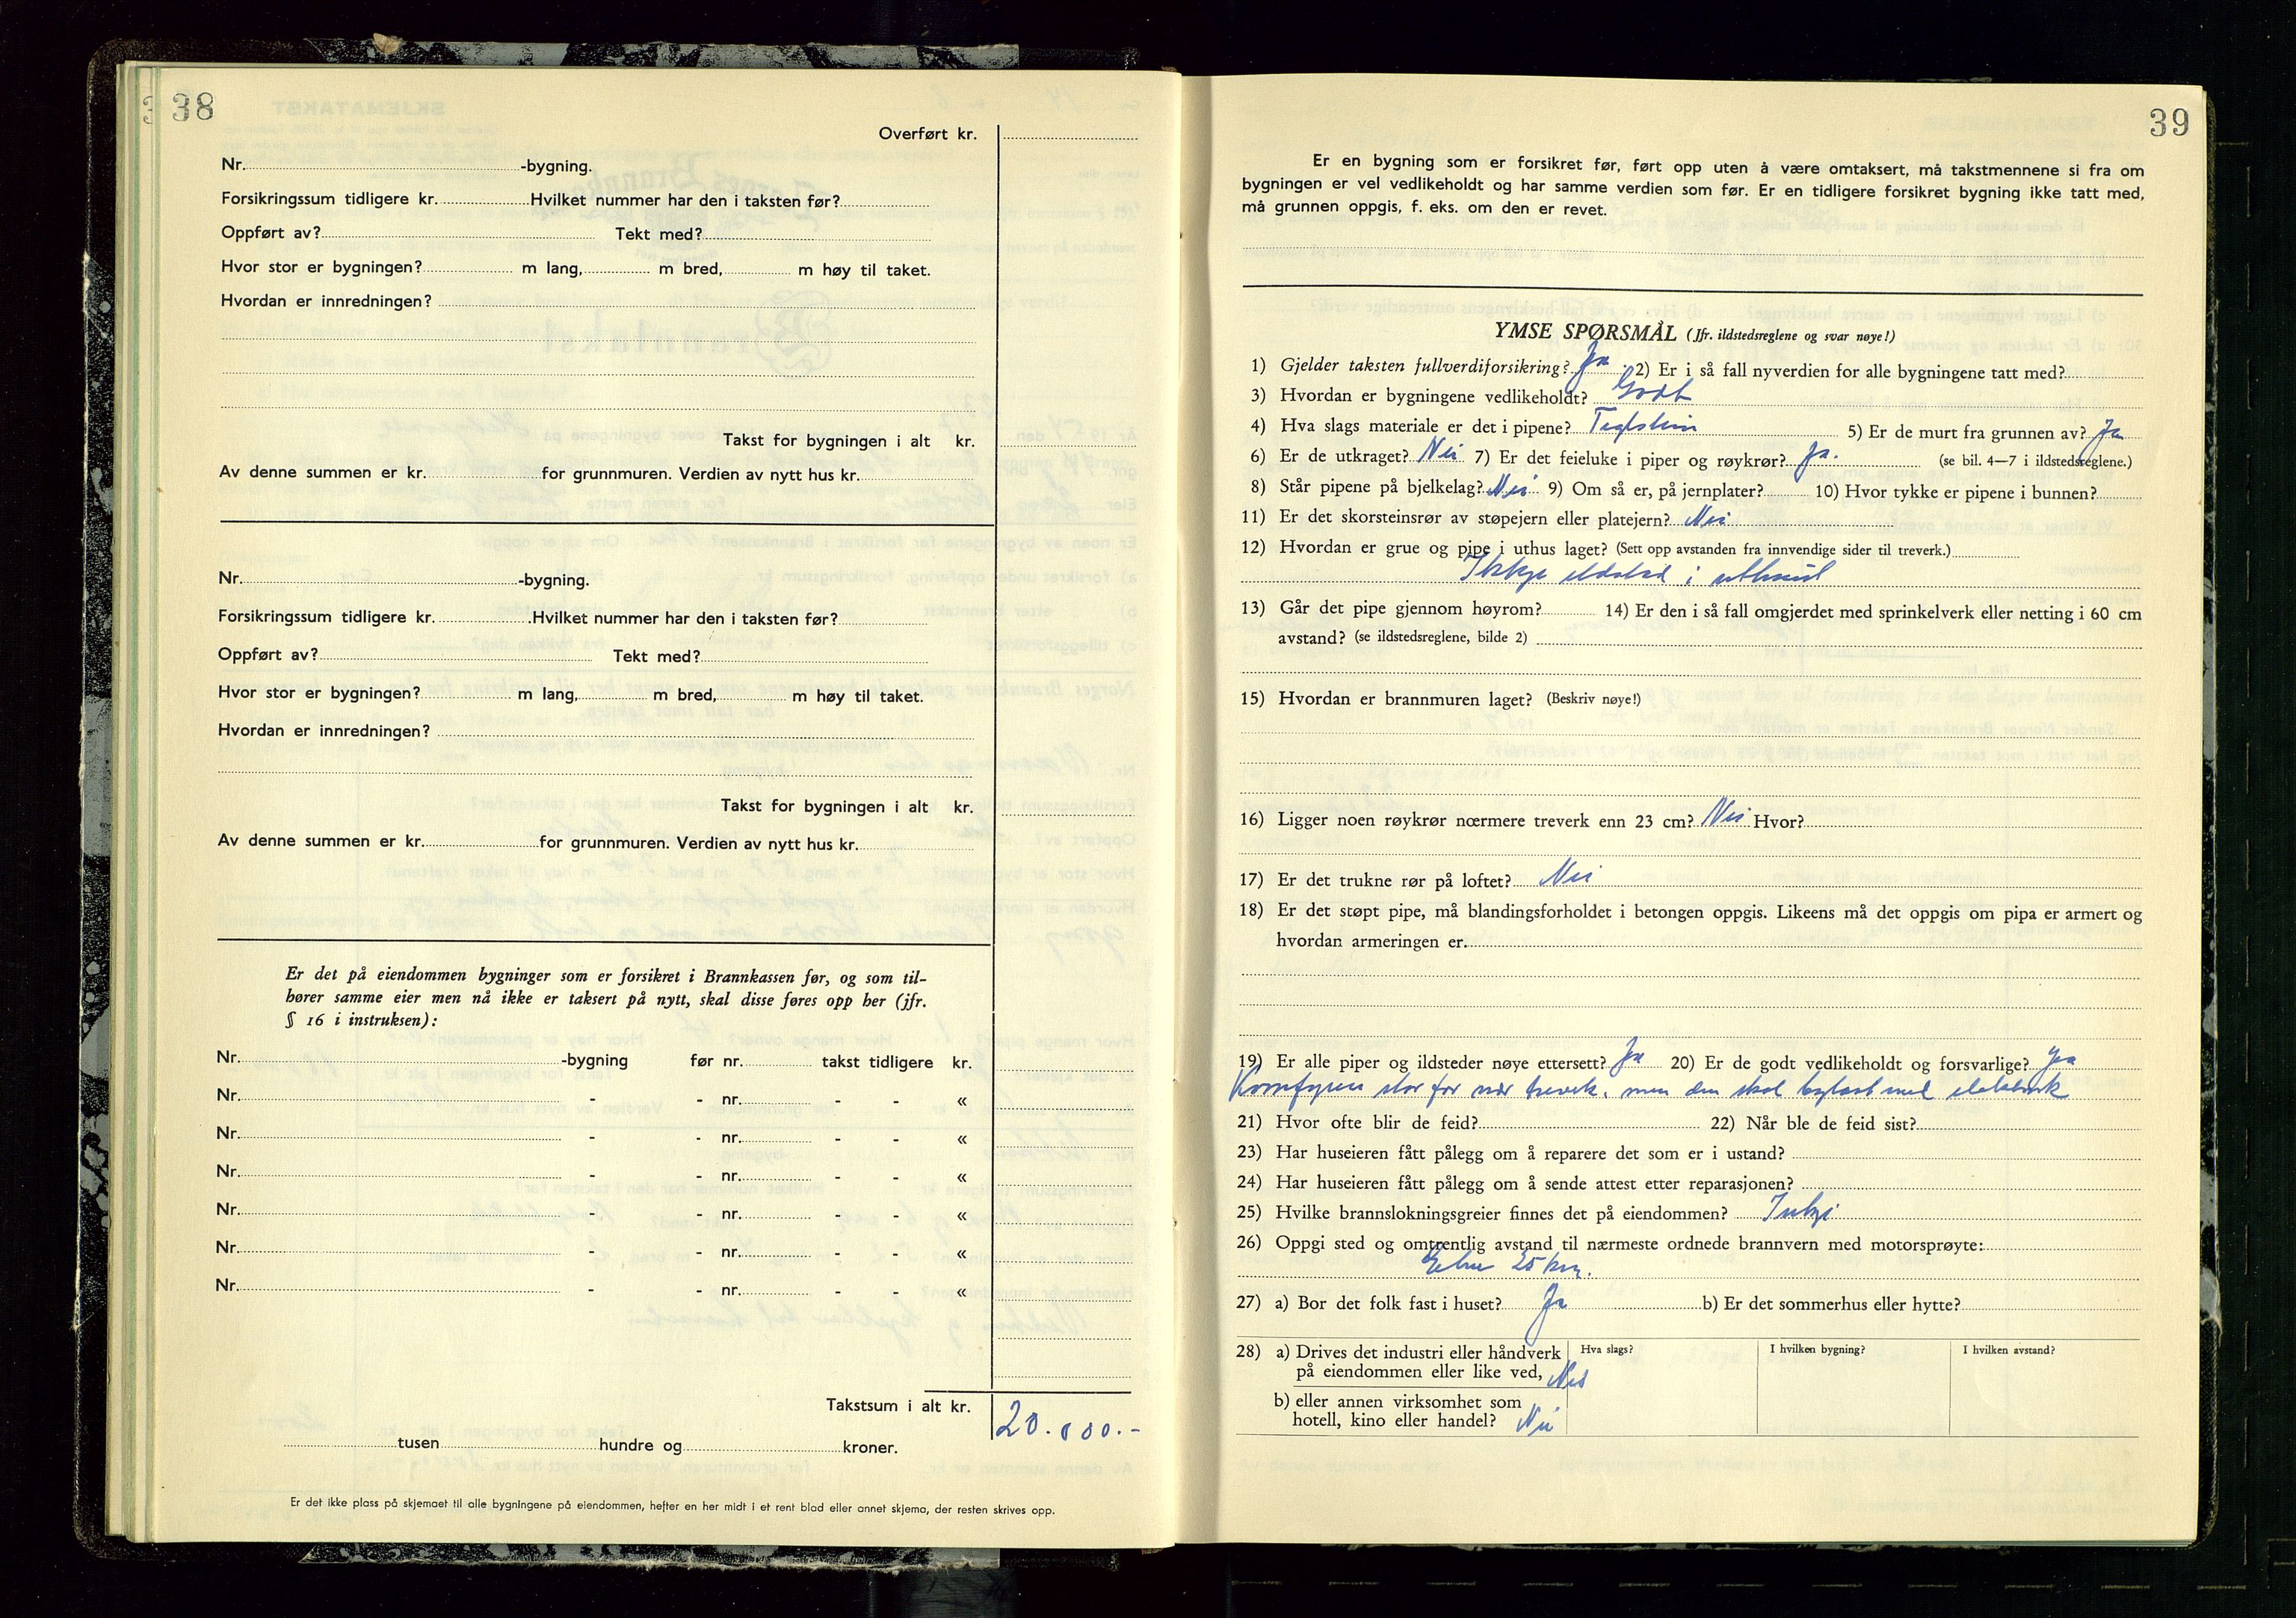 38
Overført kr.
Nr. -bygning.
Forsikringssum tidligere kr. Hvilket nummer har den i taksten før?
Oppført av? Tekt med?
Hvor stor er bygningen? m lang, m bred, m høy til taket.
Hvordan er innredningen?
Takst for bygningen i alt kr.
Av denne summen er kr. for grunnmuren. Verdien av nytt hus kr.
Nr. -bygning.
Forsikringssum tidligere kr. Hvilket nummer har den i taksten før?
Oppført av? Tekt med?
Hvor stor er bygningen? m lang, m bred, m høy til taket.
Hvordan er innredningen?
Takst for bygningen i alt kr.
Av denne summen er kr. for grunnmuren. Verdien av nytt hus kr.
Er det på eiendommen bygninger som er forsikret i Brannkassen før, og som til-
hører samme eier men nå ikke er taksert på nytt, skal disse føres opp her (jfr.
§ 16 i instruksen):
Nr. -bygning før nr. takst tidligere kr.
Nr. - - nr. - - «
Nr. - - nr. - - «
Nr. - - nr. - - «
Nr. - - nr. - - «
Nr. - - nr. - - «
Nr. - - nr. - - «
Takstsum i alt kr. 20.000.-
tusen hundre og kroner.
Er det ikke plass på skjemaet til alle bygningene på eiendommen, hefter en her midt i et rent blad eller annet skjema, der resten skrives opp.
39
Er en bygning som er forsikret før, ført opp uten å være omtaksert, må takstmennene si fra om
bygningen er vel vedlikeholdt og har samme verdien som før. Er en tidligere forsikret bygning ikke tatt med,
må grunnen oppgis, f. eks. om den er revet.
YMSE SPØRSMÅL (Jfr. ildstedsreglene og svar nøye!)
1) Gjelder taksten fullverdiforsikring? Ja 2) Er i så fall nyverdien for alle bygningene tatt med?
3) Hvordan er bygningene vedlikeholdt? Godt
4) Hva slags materiale er det i pipene? Teglstein 5) Er de murt fra grunnen av? Ja
6) Er de utkraget? Nei 7) Er det feieluke i piper og røykrør? Ja. (se bil. 4—7 i ildstedsreglene.)
8) Står pipene på bjelkelag? Nei 9) Om så er, på jernplater? 10) Hvor tykke er pipene i bunnen?
11) Er det skorsteinsrør av støpejern eller platejern? Nei
12) Hvordan er grue og pipe i uthus laget? (Sett opp avstanden fra innvendige sider til treverk.)
Ikkje eldstad i uthuset
13) Går det pipe gjennom høyrom? 14) Er den i så fall omgjerdet med sprinkelverk eller netting i 60 cm
avstand? (se ildstedsreglene, bilde 2)
15) Hvordan er brannmuren laget? (Beskriv nøye!)
16) Ligger noen røykrør nærmere treverk enn 23 cm? Nei Hvor?
17) Er det trukne rør på loftet? Nei
18) Er det støpt pipe, må blandingsforholdet i betongen oppgis. Likeens må det oppgis om pipa er armert og
hvordan armeringen er.
19) Er alle piper og ildsteder nøye ettersett? Ja 20) Er de godt vedlikeholdt og forsvarlige? Ja
Komfyren står for nær treverk, men den skal bytast med elektrisk
21) Hvor ofte blir de feid? 22) Når ble de feid sist?
23) Har huseieren fått pålegg om å reparere det som er i ustand?
24) Har huseieren fått pålegg om å sende attest etter reparasjonen?
25) Hvilke brannslokningsgreier finnes det på eiendommen? Inkje
26) Oppgi sted og omtrentlig avstand til nærmeste ordnede brannvern med motorsprøyte:
Etne 25 km.
27) a) Bor det folk fast i huset? Ja b) Er det sommerhus eller hytte?
28) a) Drives det industri eller håndverk Hva slags? I hvilken bygning? I hvilken avstand?
på eiendommen eller like ved, Nei
b) eller annen virksomhet som
hotell, kino eller handel? Nei